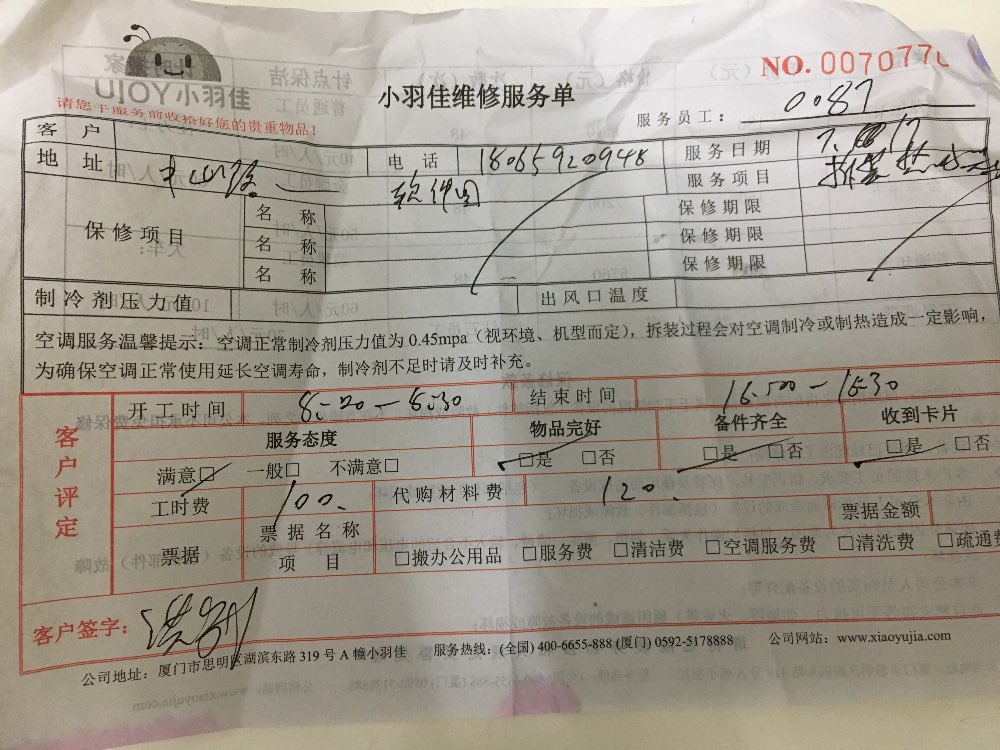 UJOY小羽佳
请您于服务前收拾好您的贵重物品!
小羽佳维修服务单
NO. 0070770
服务员工: 0087
客户 电话 18065920948 服务日期
地址 中山路 软件园 服务项目
保修项目 名称 保修期限
名称 保修期限
名称 保修期限
制冷剂压力值 出风口温度
空调服务温馨提示:空调正常制冷剂压力值为 0.45mpa(视环境、机型而定),拆装过程会对空调制冷或制热造成一定影响,
为确保空调正常使用延长空调寿命,制冷剂不足时请及时补充。
客户评定
开工时间 结束时间
服务态度 物品完好 备件齐全 收到卡片
满意□ 一般□ 不满意□ □是 □否 □是 □否 □是 □否
工时费 100. 代购材料费 120.
票据 票据名称 票据金额
项目 □搬办公用品 □服务费 □清洁费 □空调服务费 □清洗费 □疏通费
客户签字:
公司地址:厦门市思明区湖滨东路 319 号 A 幢小羽佳 服务热线:(全国) 400-6655-888 (厦门) 0592-5178888 公司网站:www.xiaoyujia.com